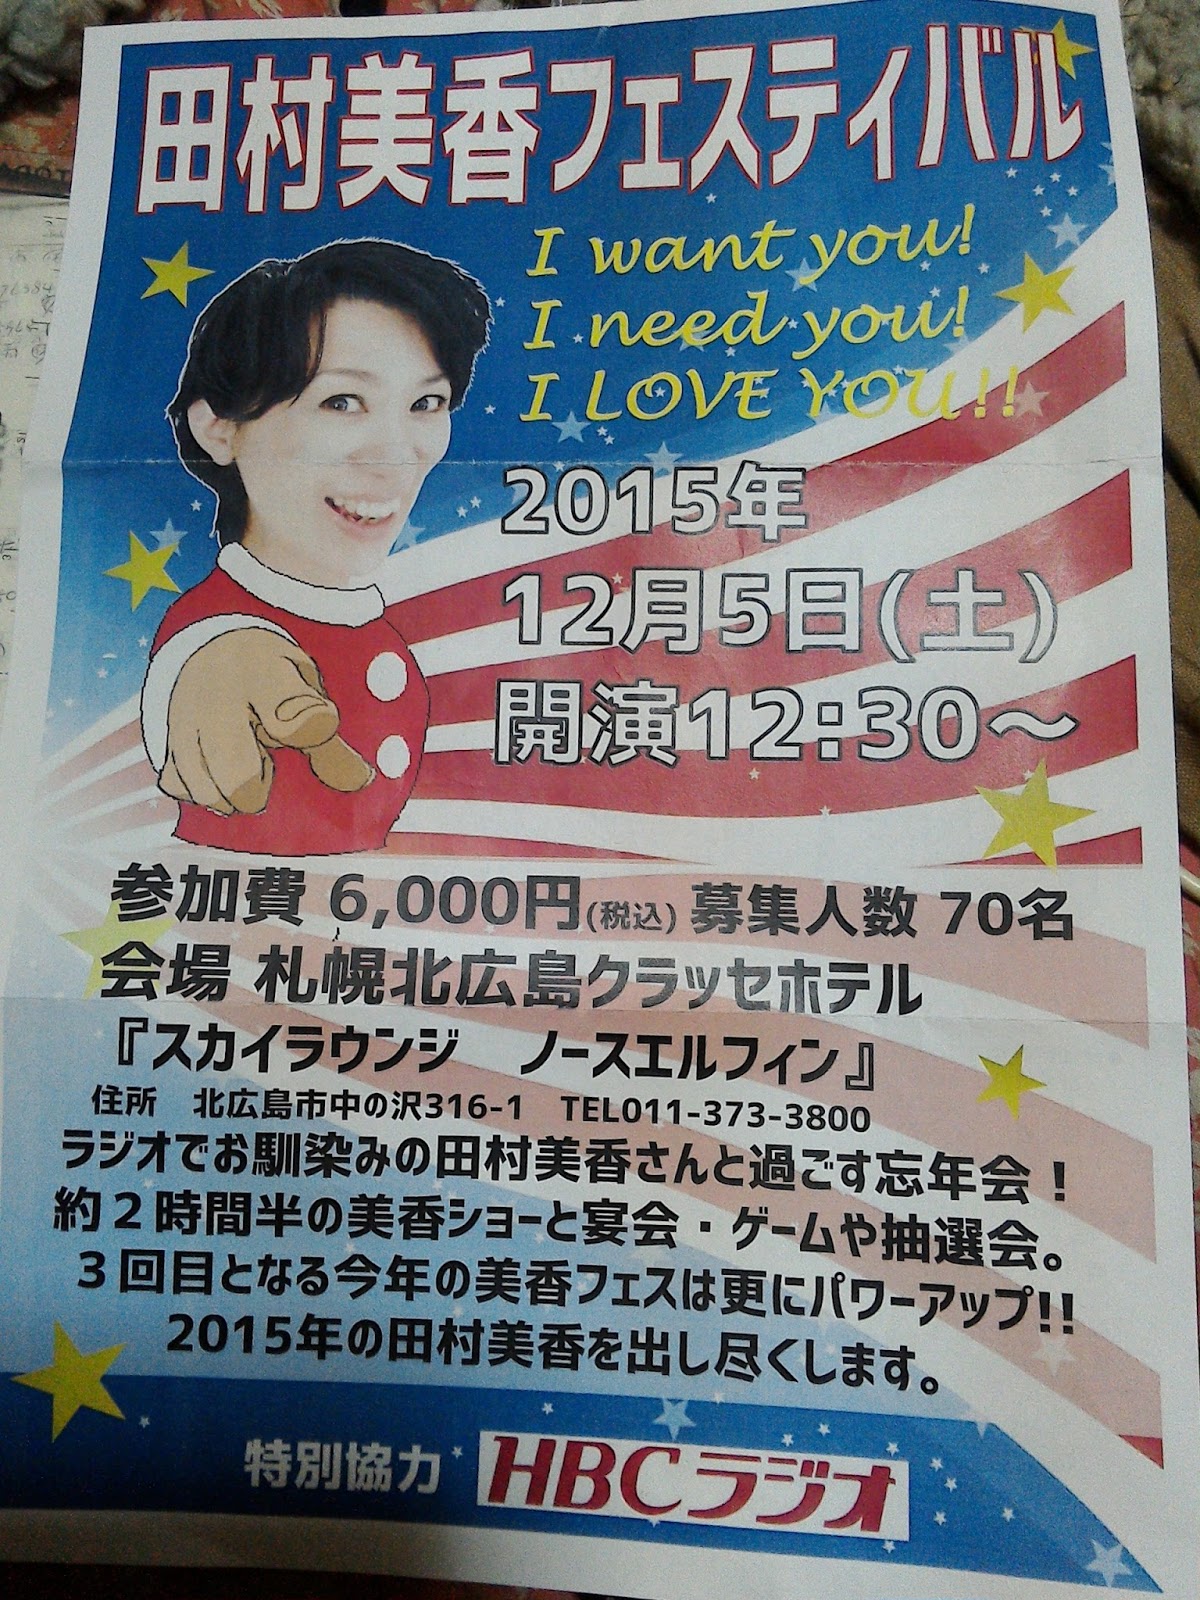 田村美香フェスティバル
I want you!
I need you!
I LOVE YOU!!
2015年
12月5日(土)
開演12:30～
参加費 6,000円(税込) 募集人数 70名
会場 札幌北広島クラッセホテル
『スカイラウンジ　ノースエルフィン』
住所　北広島市中の沢316-1　TEL011-373-3800
ラジオでお馴染みの田村美香さんと過ごす忘年会！
約２時間半の美香ショーと宴会・ゲームや抽選会。
３回目となる今年の美香フェスは更にパワーアップ!!
2015年の田村美香を出し尽くします。
特別協力 HBCラジオ